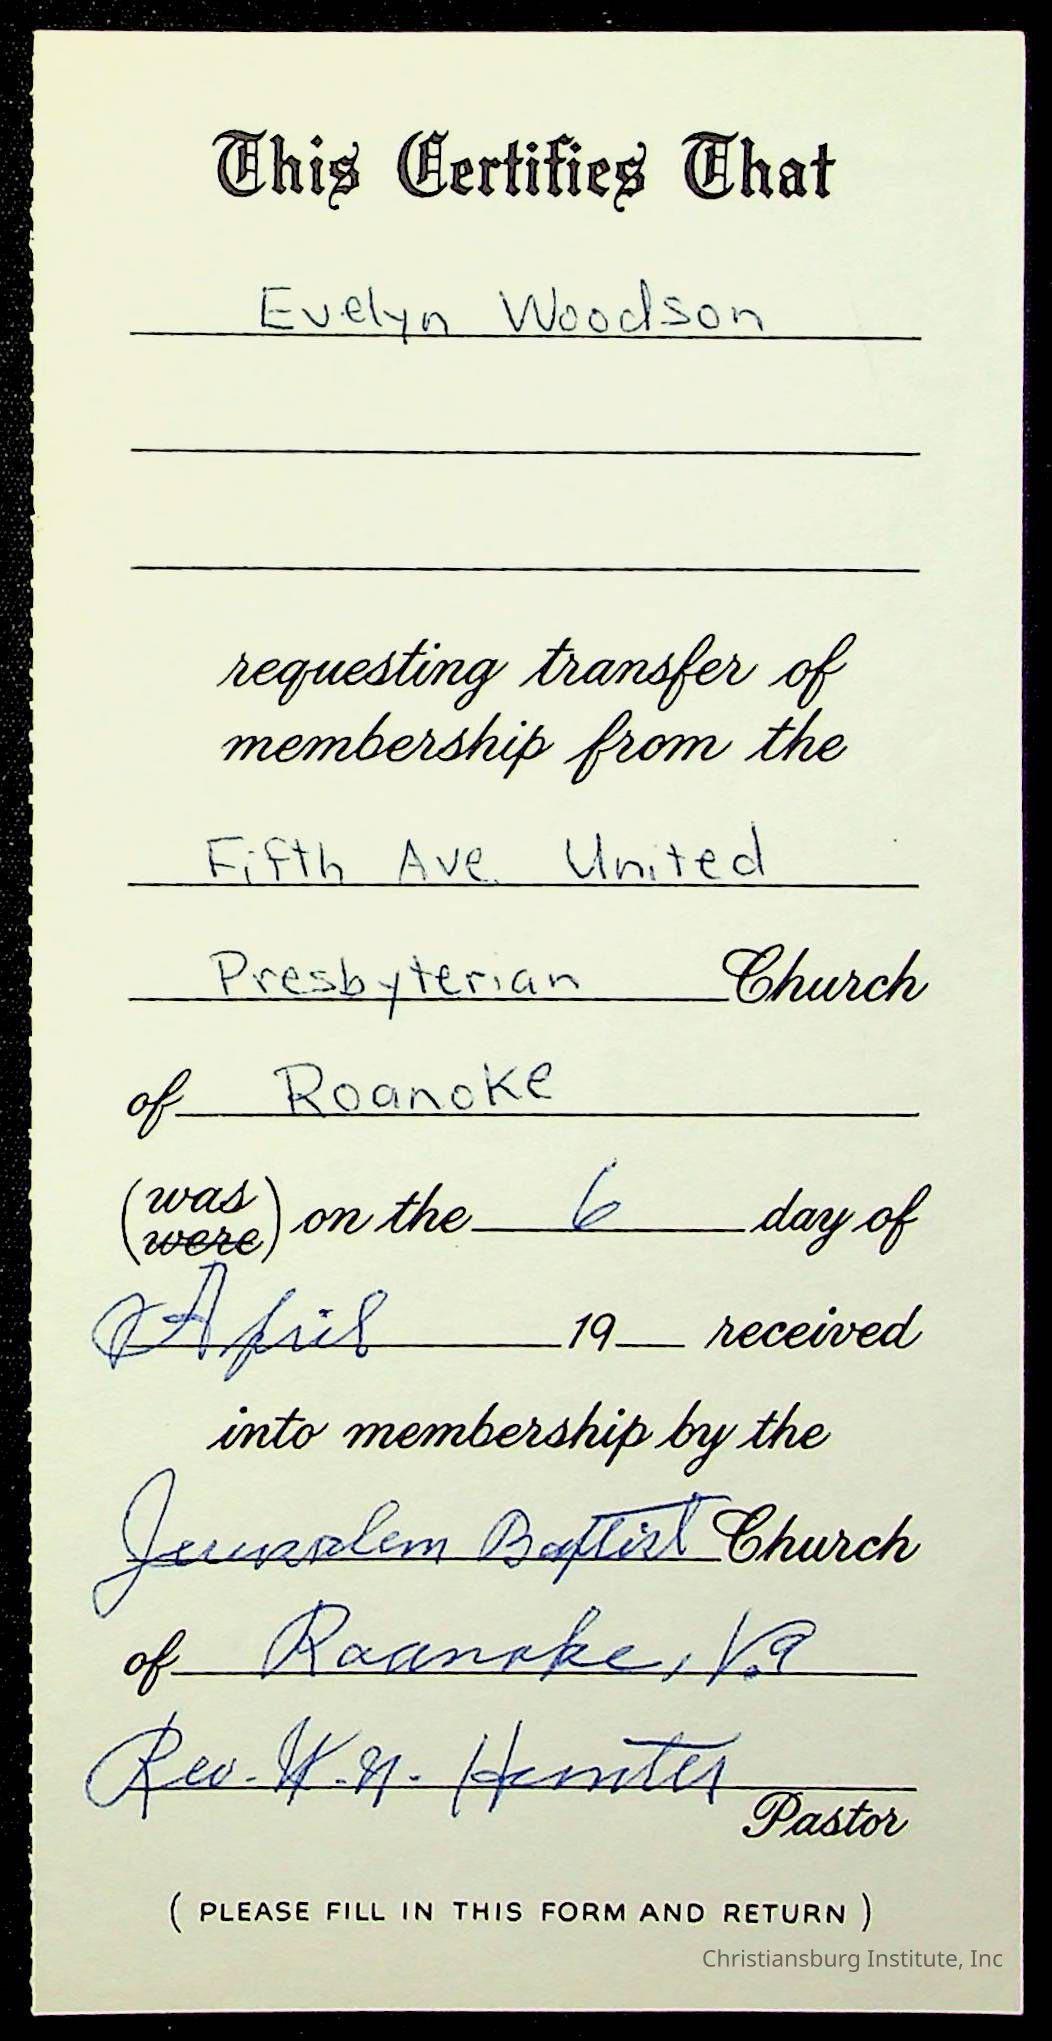 This Certifies That
Evelyn Woodson
requesting transfer of
membership from the
Fifth Ave. United
Presbyterian Church
of Roanoke
(was
were) on the 6 day of
April 19 received
into membership by the
Jerusalem Baptist Church
of Roanoke, Va
Rev. W. N. Hunter
Pastor
( PLEASE FILL IN THIS FORM AND RETURN )
Christiansburg Institute, Inc